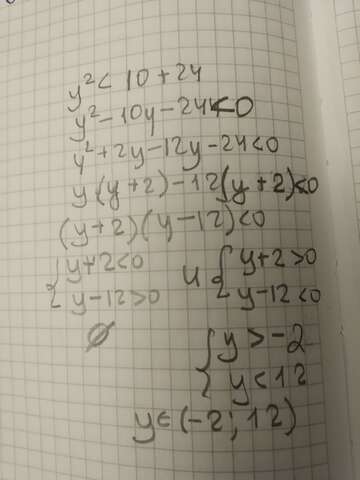 y² < 10 + 24
y² - 10y - 24 < 0
y² + 2y - 12y - 24 < 0
y (y + 2) - 12 (y + 2) < 0
(y + 2) (y - 12) < 0
{ y + 2 < 0 и { y + 2 > 0
{ y - 12 > 0 { y - 12 < 0
∅ { y > -2
{ y < 12
y ∈ (-2; 12)